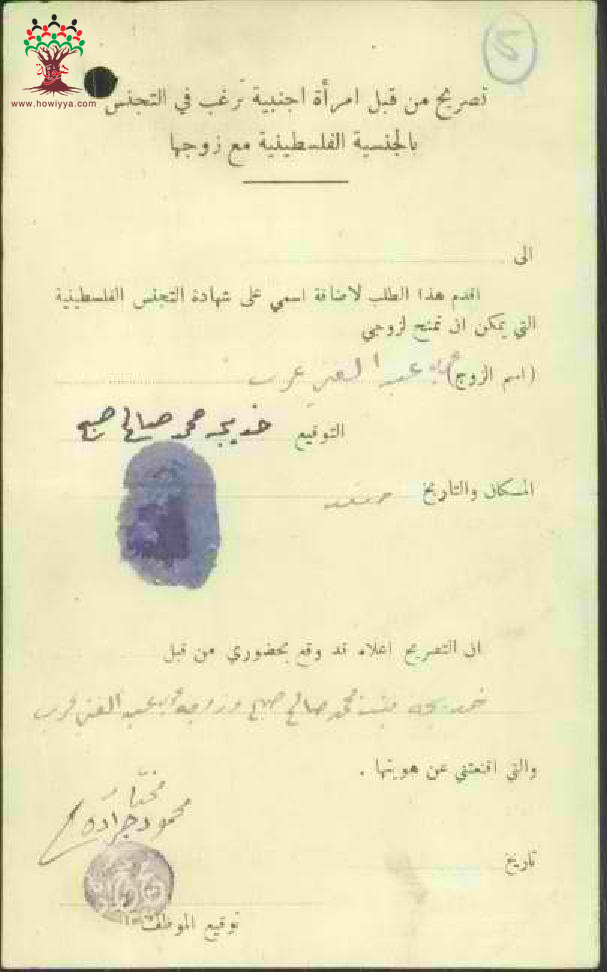 5
www.howiyya.com
تصريح من قبل امرأة اجنبية ترغب في التجنس
بالجنسية الفلسطينية مع زوجها
الى
اقدم هذا الطلب لاضافة اسمي على شهادة التجنس الفلسطينية
التي يمكن ان تمنح لزوجي
(اسم الزوج) عبد الغني عرب
التوقيع خديجه محمد صالح صبح
المكان والتاريخ صفد
ان التصريح اعلاه قد وقع بحضوري من قبل
خديجه بنت محمد صالح صبح وزوجة عبد الغني عرب
والتي اقنعتني عن هويتها .
مختار
محمود جراده
تاريخ
توقيع الموظف